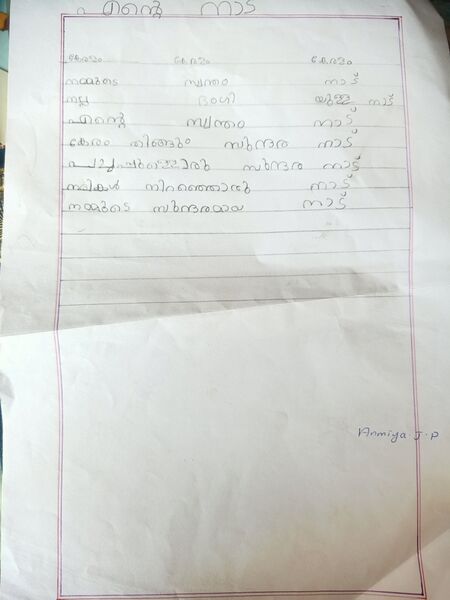 എന്റെ നാട്
കേരളം കേരളം കേരളം
നമ്മുടെ സ്വന്തം നാട്
നല്ല ഭംഗി യുള്ള നാട്
എന്റെ സ്വന്തം നാട്
കേരം തിങ്ങും സുന്ദര നാട്
പച്ചപ്പുള്ളൊരു സുന്ദര നാട്
നദികൾ നിറഞ്ഞൊരു നാട്
നമ്മുടെ സുന്ദരമായ നാട്
Anmiya. J. P